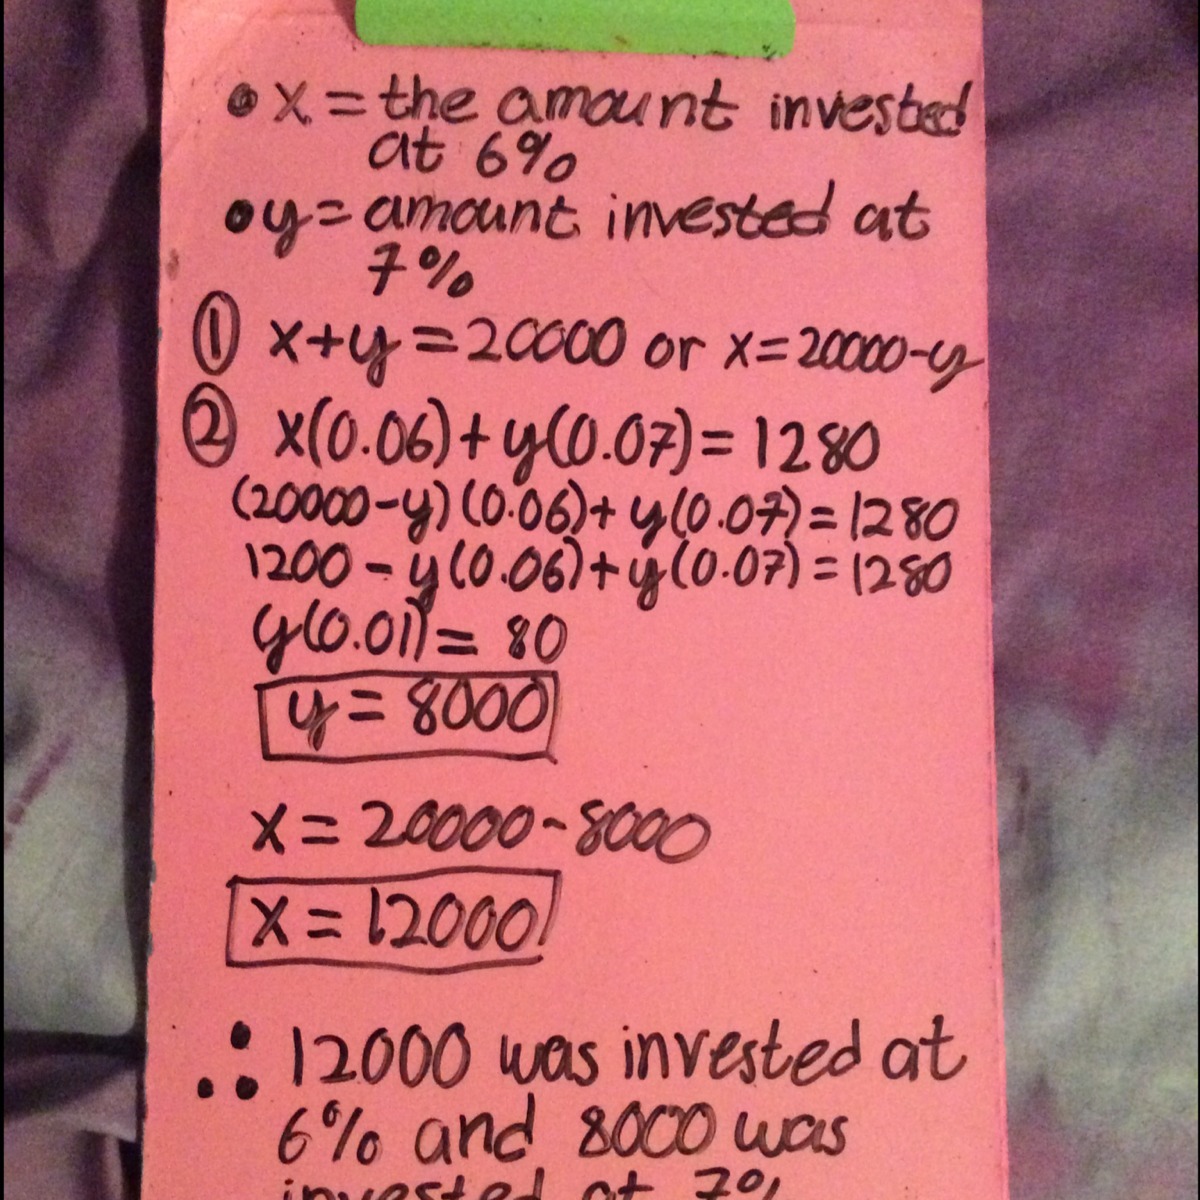 • x = the amount invested
at 6%
• y = amount invested at
7%
① x+y = 20000 or x = 20000-y
② x(0.06) + y(0.07) = 1280
(20000-y)(0.06) + y(0.07) = 1280
1200 - y(0.06) + y(0.07) = 1280
y(0.01) = 80
y = 8000
x = 20000-8000
x = 12000
∴ 12000 was invested at
6% and 8000 was
invested at 7%